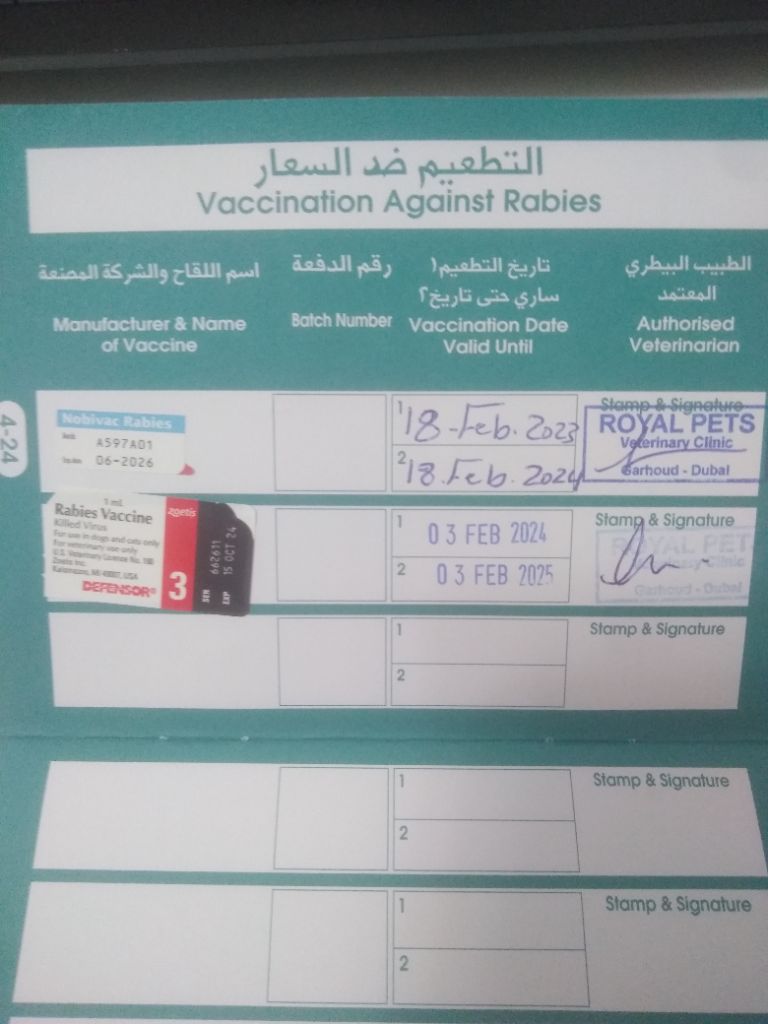 التطعيم ضد السعار
Vaccination Against Rabies
اسم اللقاح والشركة المصنعة
Manufacturer & Name
of Vaccine
رقم الدفعة
Batch Number
تاريخ التطعيم ١
ساري حتى تاريخ ٢
Vaccination Date
Valid Until
الطبيب البيطري
المعتمد
Authorised
Veterinarian
4-24
Nobivac Rabies
A597A01
06-2026
1 18-Feb. 2023
2 18.Feb. 2024
Stamp & Signature
ROYAL PETS
Veterinary Clinic
Garhoud - Dubai
1 mL
Rabies Vaccine
Killed Virus
For use in dogs and cats only
For veterinary use only
U.S. Veterinary Licence No. 190
Zoetis Inc.
Kalamazoo, MI 49007, USA
DEFENSOR® 3
zoetis
SER 662611
EXP 15 OCT 24
1 03 FEB 2024
2 03 FEB 2025
Stamp & Signature
ROYAL PET
Clinic
Garhoud - Dubai
1
2
Stamp & Signature
1
2
Stamp & Signature
1
2
Stamp & Signature